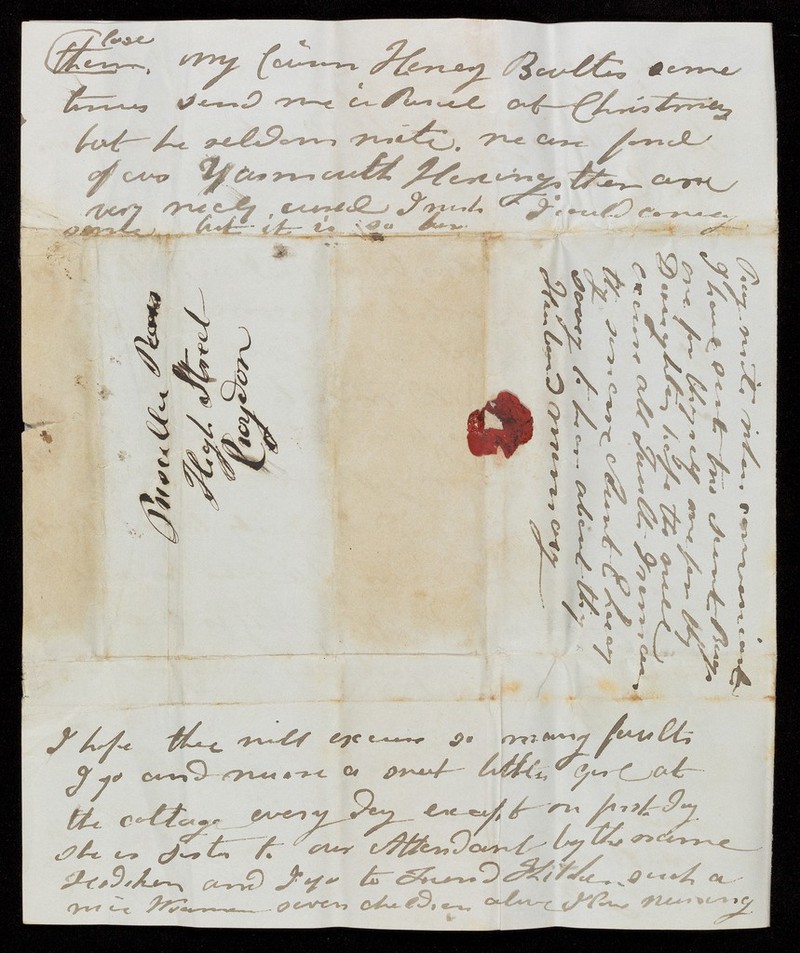 close
them, my Cousin Henry Boulter some
times send me a Parcel at Christmas
but he seldom write. we are fond
of our Yarmouth Herrings then are
very nicely cured I wish I could convey
some but it is so far
Priscilla
High Street
Croydon
Pray write when convenient
I have sent two Scent Bags
one for thyself one for thy
Daughter, hope tho will
excuse all faults I remain
thy sincere Aunt E Lucy
sorry to hear about thy
Husband memory
I hope thee will excuse so many faults
I go and nurse a sweet little Girl at
the cottage every Day except on first Day
she is Sister to our Attendant by the name
and I go to Friend such a
nice Woman seven children alive I love nursing